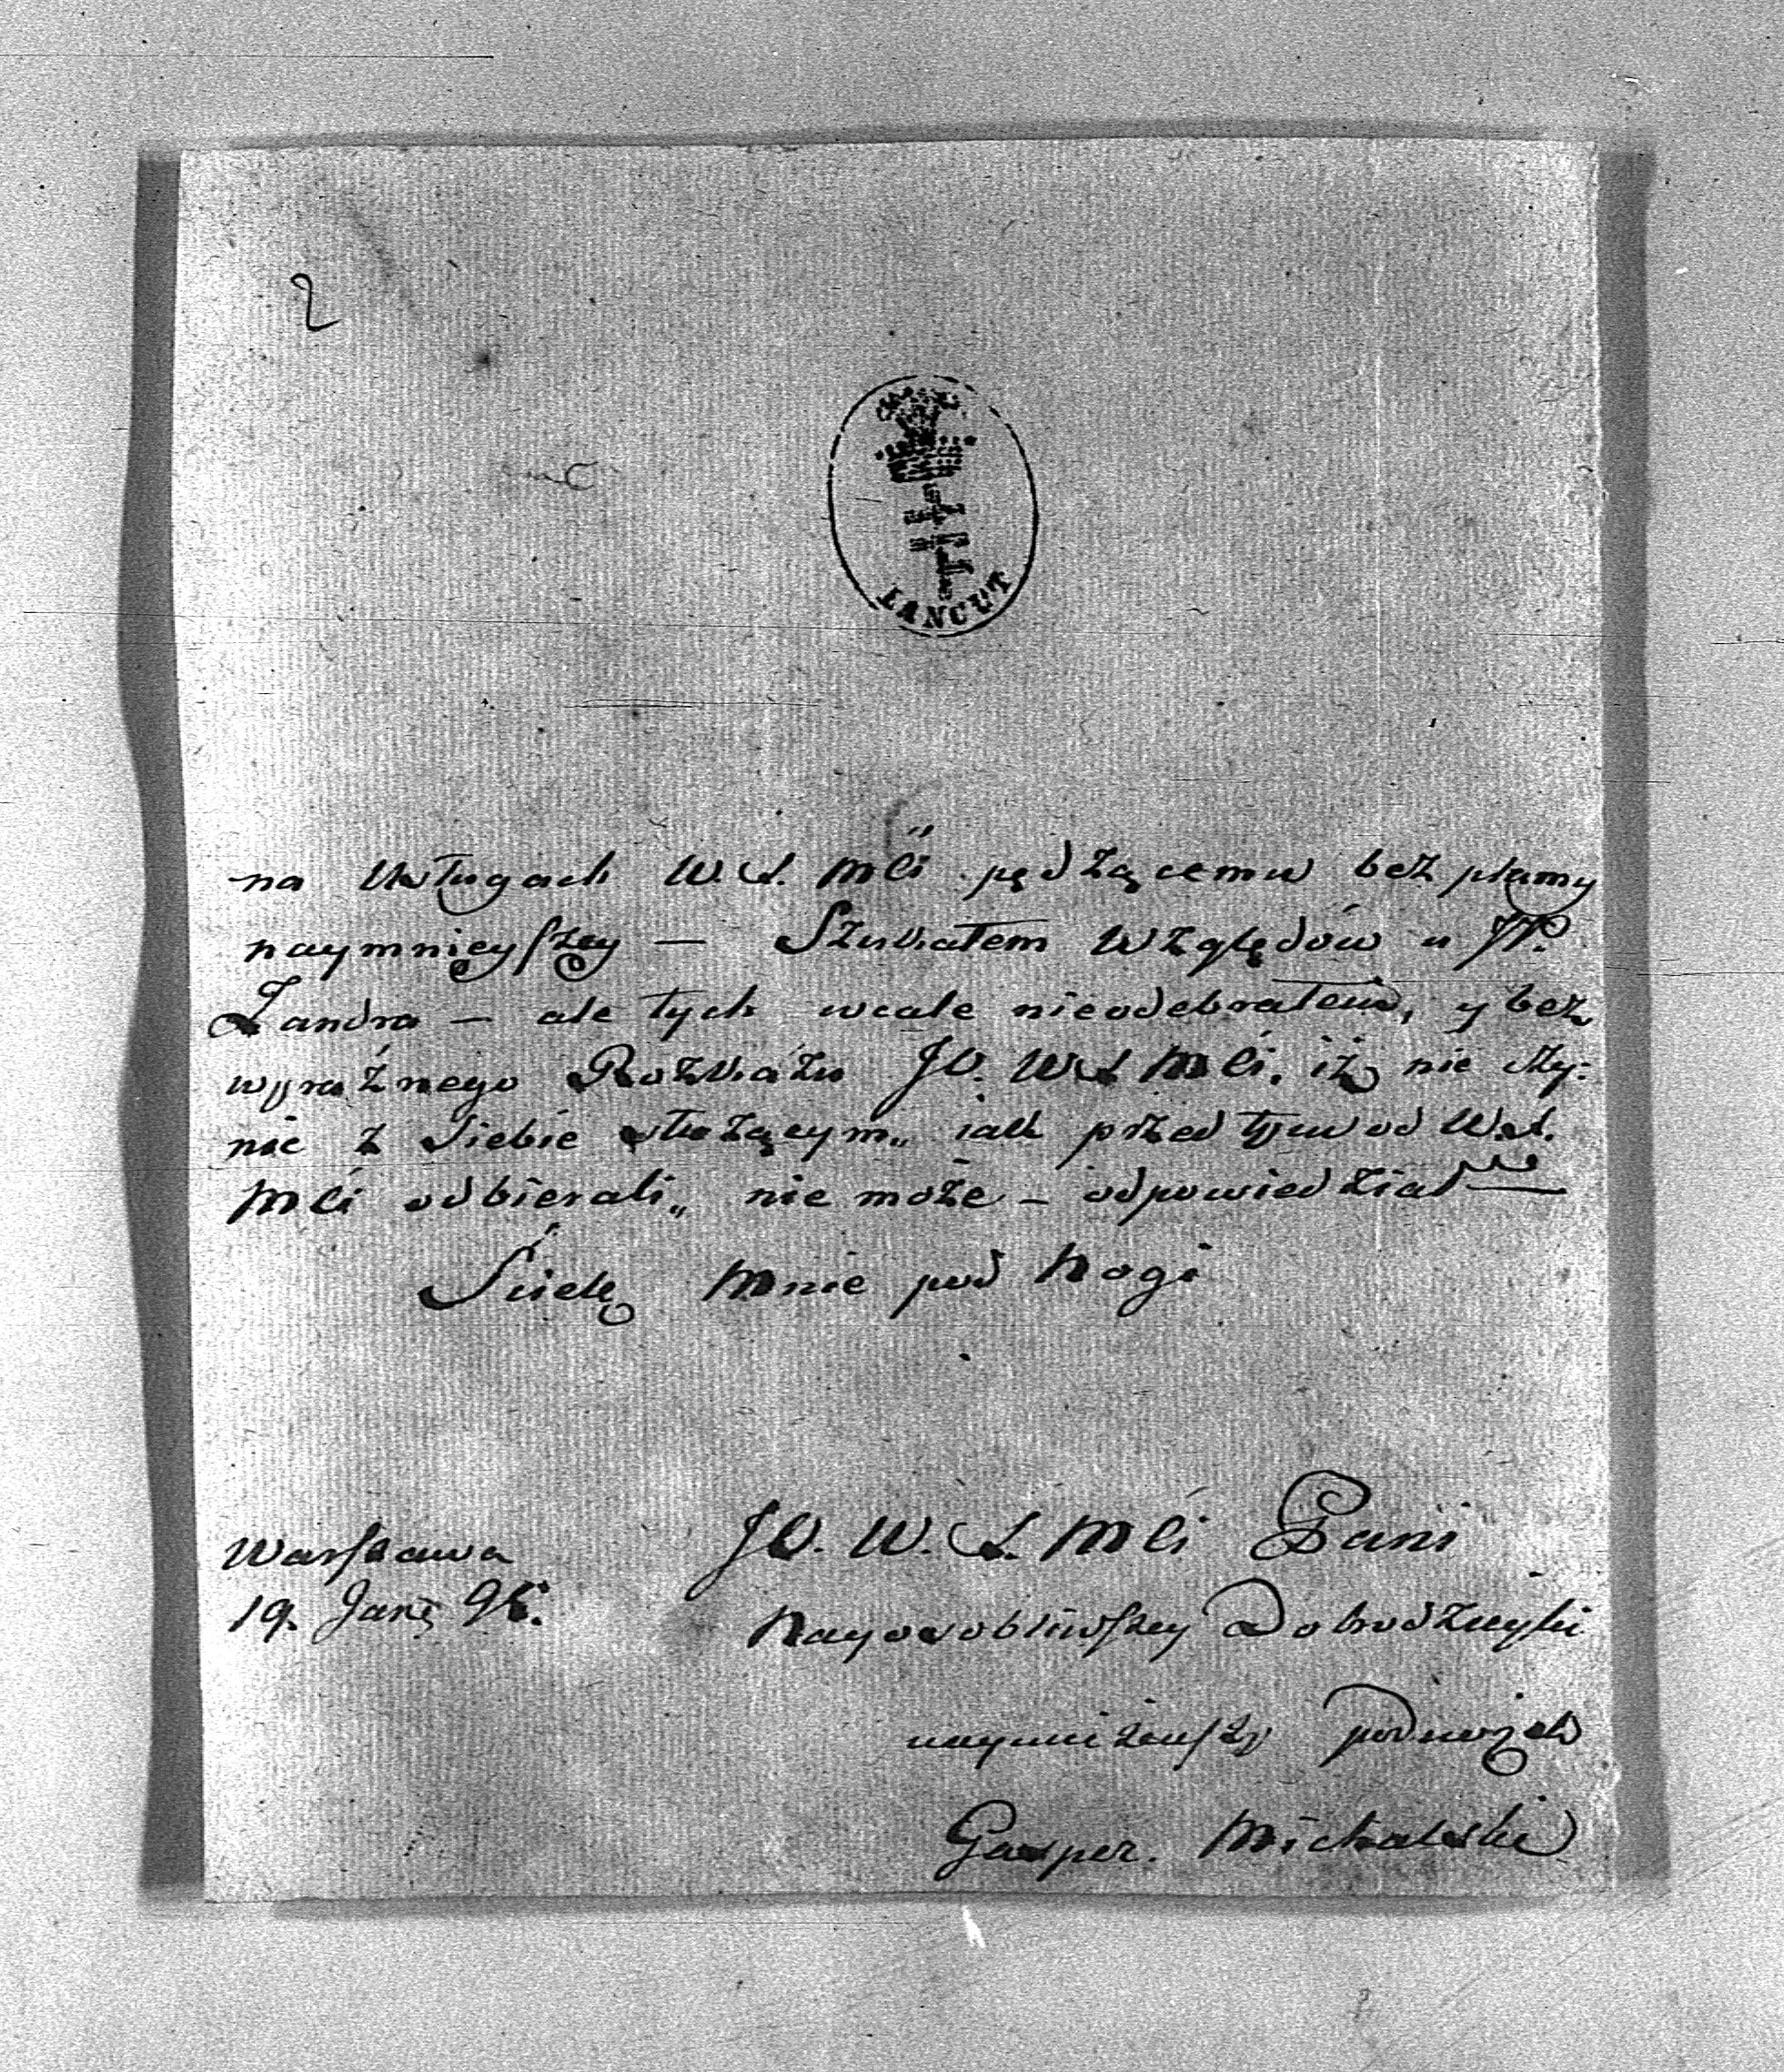 2
ŁAŃCUT
na usługach W. X. Mći pędzącemu bez plamy
naymnieyſzey — Szukałem względów u JP.
Landra — ale tych wcale nieodebrałem, y bez
wyraźnego Rozkazu JO. W X Mći, iż nie czy:
nić z Siebie służącym„ iak przed tym od W. X.
Mći odbierali„ nie może — odpowiedział —
Ściele mnie pod Nogi
JO. W. X. Mći Pani
Warſzawa
19. Jan. 96.
Nayosobliwſzey Dobrodzieyki
nayniższy podnóżek
Gasper. Michalski